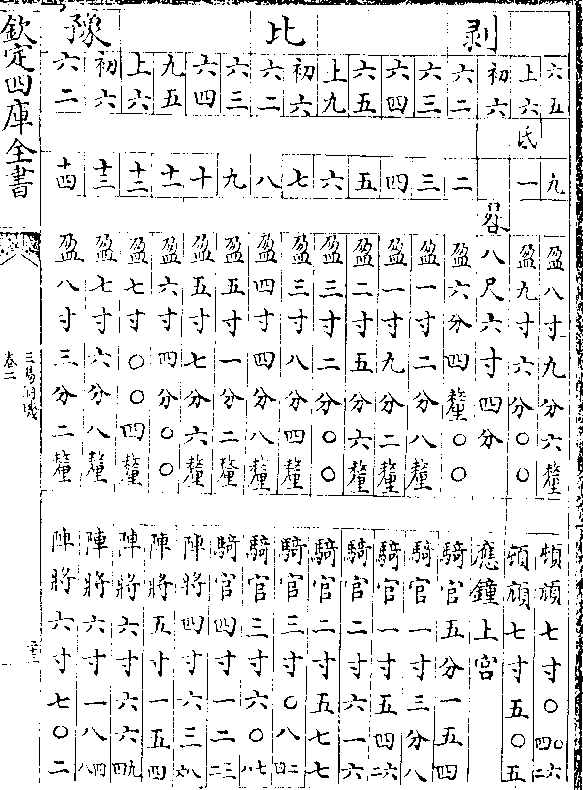 六五 九 盈八寸九分六釐 頓頑七寸〇
上六 氐 一 盈九寸六分〇〇 頓頑七寸五〇五二
剥 初六 晷八尺六寸四分 應鐘上宮
六二 二 盈六分四釐〇〇 騎官五分一五四
六三 三 盈一寸二分八釐 騎官一寸三分八
六四 四 盈一寸九分二釐 騎官一寸五四六二
六五 五 盈二寸五分六釐 騎官二寸六一六
上九 六 盈三寸二分〇〇 騎官二寸五七七
比 初六 七 盈三寸八分四釐 騎官三寸〇八四二
六二 八 盈四寸四分八釐 騎官三寸六〇八七
六三 九 盈五寸一分二釐 騎官四寸一二二三
六四 十 盈五寸七分六釐 陣將四寸六三八六
九五 十一 盈六寸四分〇〇 陣將五寸一五四
上六 十二 盈七寸〇〇四釐 陣將六寸六六四九
豫 初六 十三 盈七寸六分八釐 陣將六寸一八八四
六二 十四 盈八寸三分二釐 陣將六寸七〇二
欽定四庫全書
三易洞璣
卷二